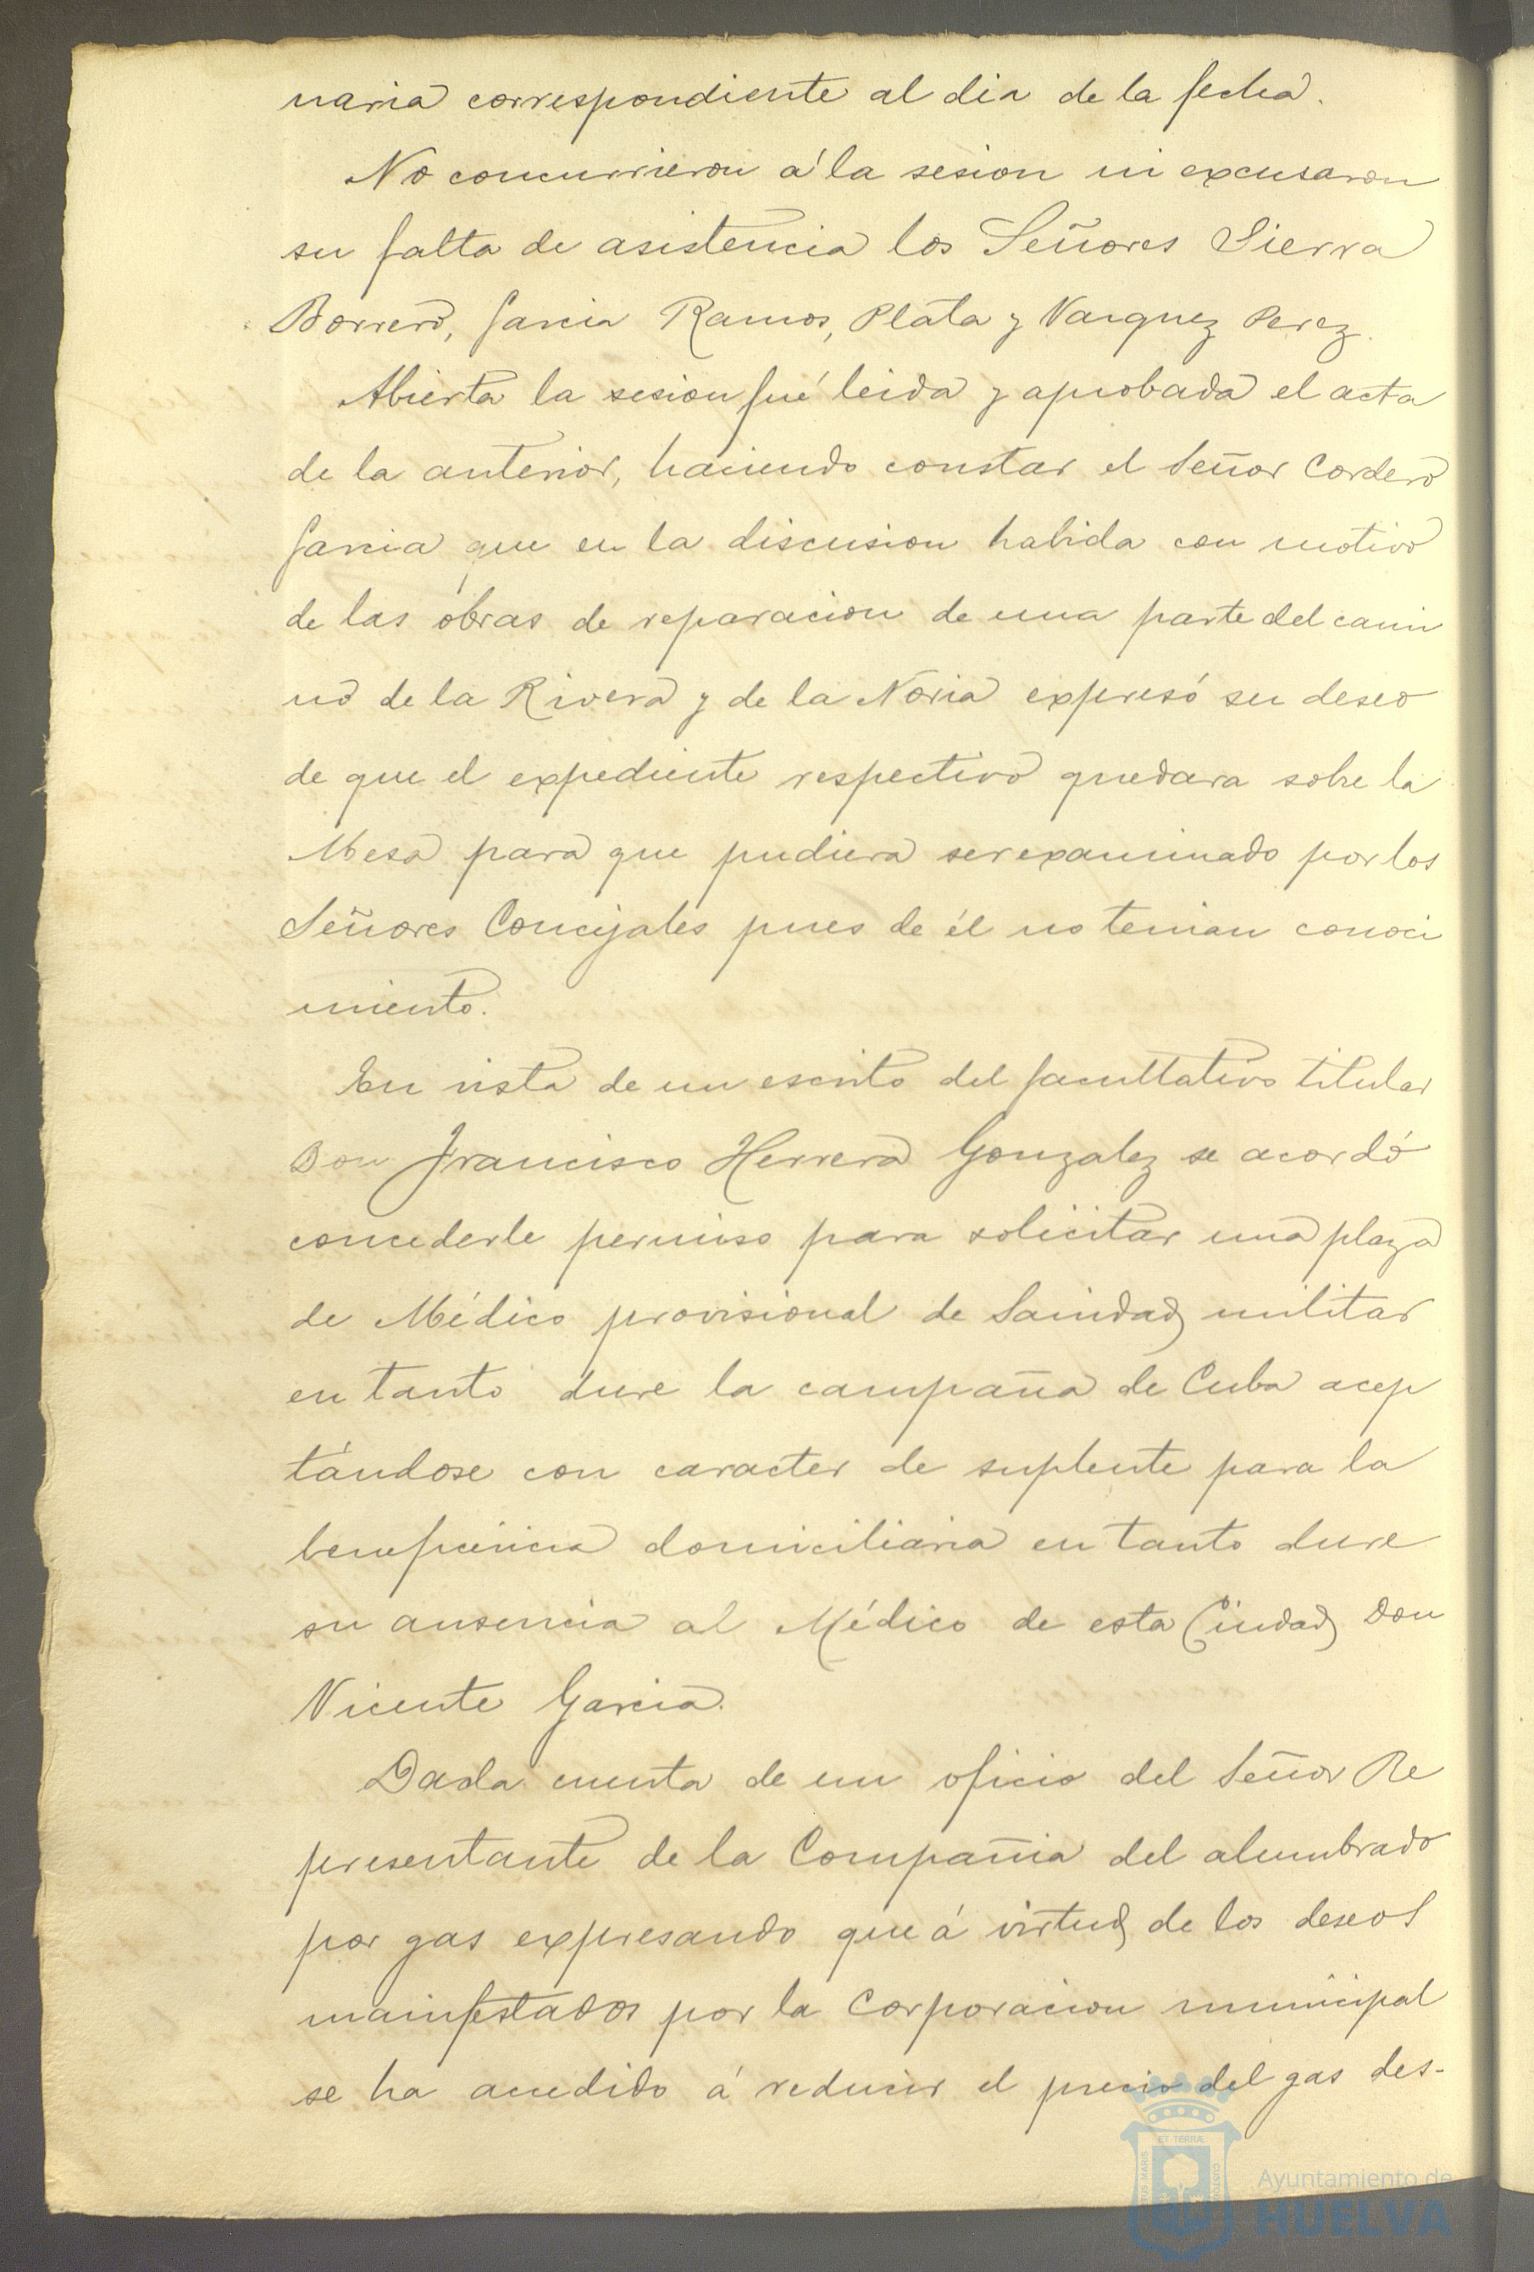 naria correspondiente al dia de la fecha.
No concurrieron á la sesion ni excusaron
su falta de asistencia los Señores Sierra
Borrero, Garcia Ramos, Plata y Vazquez Perez.
Abierta la sesion fué leida y aprobada el acta
de la anterior, haciendo constar el Señor Cordero
Garcia que en la discusion habida con motivo
de las obras de reparacion de una parte del cami
no de la Rivera y de la Noria expresó su deseo
de que el expediente respectivo quedara sobre la
Mesa para que pudiera ser examinado por los
Señores Concejales pues de él no tenian conoci
miento.
En vista de un escrito del facultativo titular
Don Francisco Herrera Gonzalez se acordó
concederle permiso para solicitar una plaza
de Médico provisional de Sanidad militar
en tanto dure la campaña de Cuba acep
tándose con caracter de suplente para la
beneficencia domiciliaria en tanto dure
su ausencia al Médico de esta Ciudad Don
Vicente Garcia.
Dada cuenta de un oficio del Señor Re
presentante de la Compañia del alumbrado
por gas expresando que á virtud de los deseos
manifestados por la Corporacion municipal
se ha accedido á reducir el precio del gas des-
ET TERRÆ
Ayuntamiento de
HUELVA